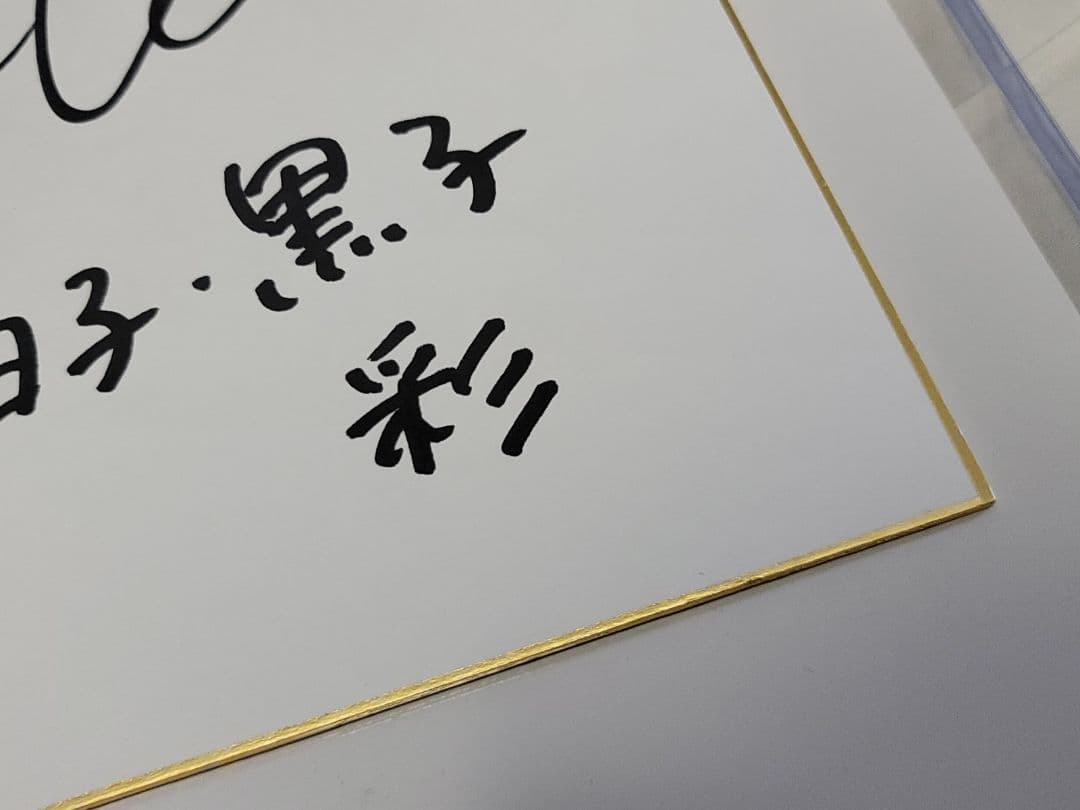 子・黒子
彩